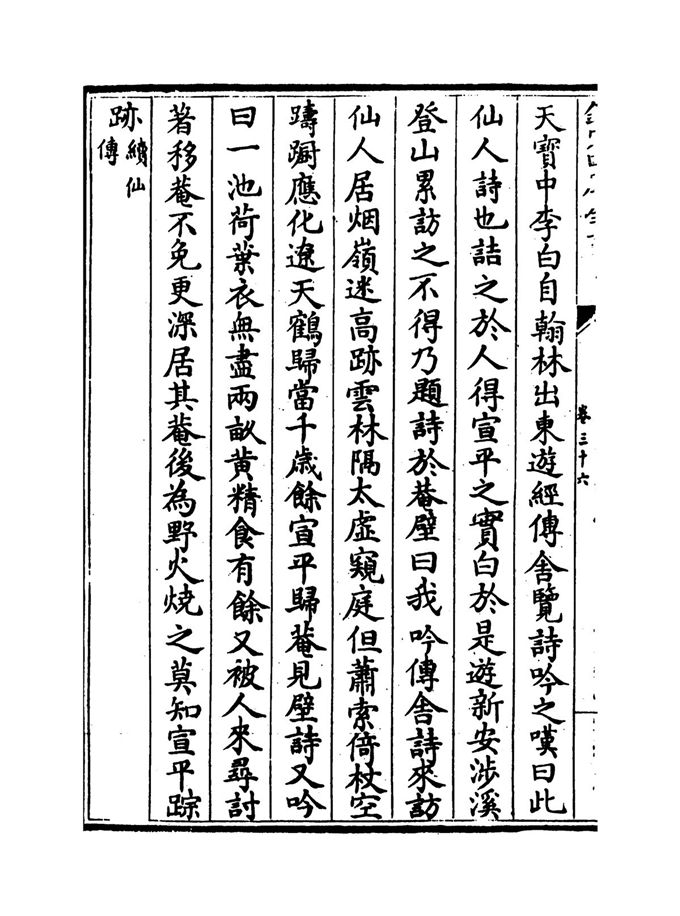 卷三十六
天寳中李白自翰林出東遊經傳舍覽詩吟之嘆曰此
仙人詩也詰之於人得宣平之實白於是遊新安涉溪
登山累訪之不得乃題詩於菴壁曰我吟傳舍詩來訪
仙人居烟嶺迷高跡雲林隔太虛窺庭但蕭索倚杖空
躊躕應化遼天鶴歸當千歲餘宣平歸菴見壁詩又吟
曰一池荷葉衣無盡兩畝黄精食有餘又被人來尋討
著移菴不免更深居其菴後為野火燒之莫知宣平踪
跡續仙
傳